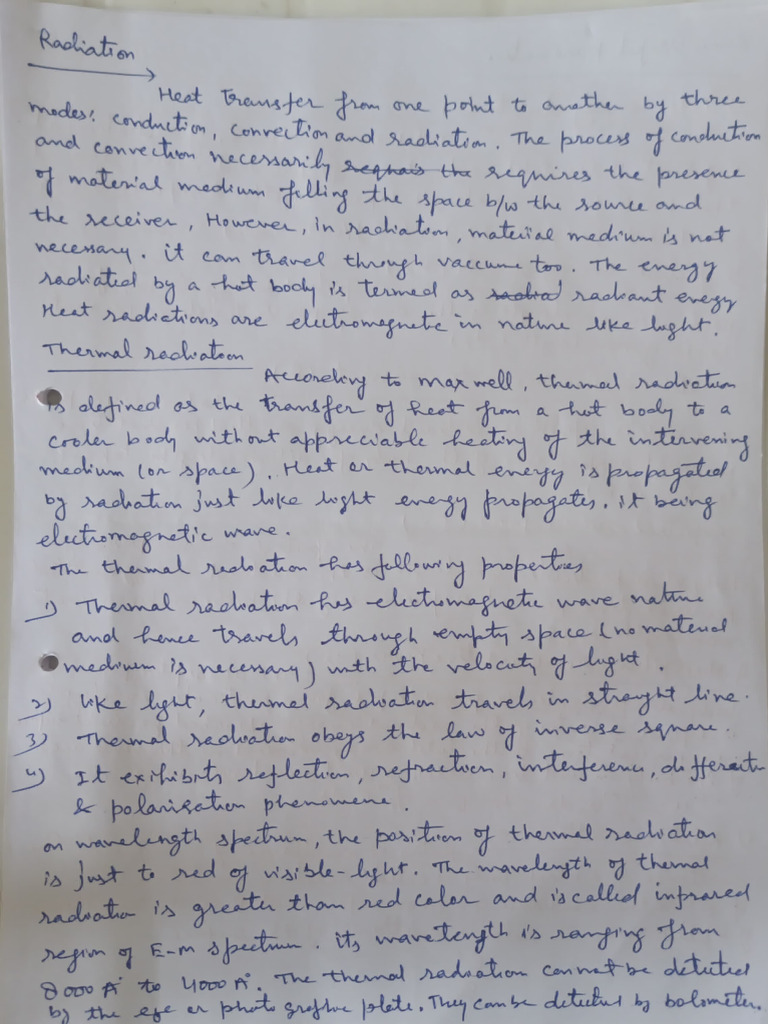 Radiation
Heat transfer from one point to another by three
modes: conduction, convection and radiation. The process of conduction
and convection necessarily requires the presence
of material medium filling the space b/w the source and
the receiver, However, in radiation, material medium is not
necessary. it can travel through vaccume too. The energy
radiated by a hot body is termed as radiant energy
Heat radiations are electromagnetic in nature like light.
Thermal radiation
According to maxwell, thermal radiation
is defined as the transfer of heat from a hot body to a
cooler body without appreciable heating of the intervening
medium (or space). Heat or thermal energy is propagated
by radiation just like light energy propagates. it being
electromagnetic wave.
The thermal radiation has following properties
1) Thermal radiation has electromagnetic wave nature
and hence travels through empty space (no material
medium is necessary) with the velocity of light.
2) like light, thermal radiation travels in straight line.
3) Thermal radiation obeys the law of inverse square.
4) It exhibits reflection, refraction, interference,
& polarisation phenomena.
on wavelength spectrum, the position of thermal radiation
is just to red of visible-light. The wavelength of thermal
radiation is greater than red color and is called infrared
region of E-m spectrum. its wavelength is ranging from
8000 A° to 4000 A°. The thermal radiation cannot be detected
by the eye or photo plate. They can be detected by bolometer.